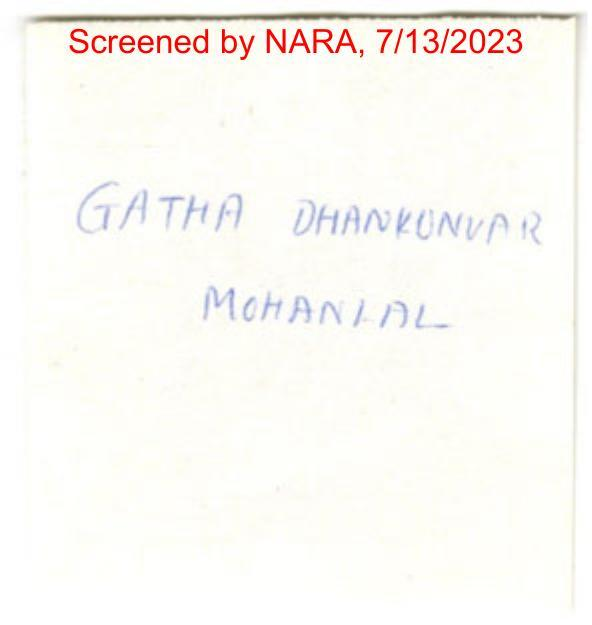 Screened by NARA, 7/13/2023
GATHA DHANKUNVAR
MOHANLAL